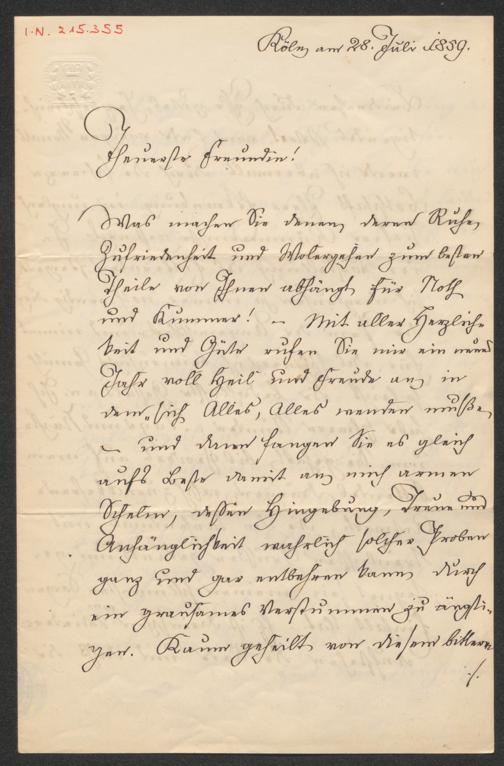 I.N. 215.355
Köln am 28. Juli 1859.
Theuerste Freundin!
Was machen Sie denen, deren Ruhe,
Zufriedenheit und Wolergehen zum besten
Theile von Ihnen abhängt für Noth
und Kummer! – Mit aller Herzlich-
keit und Güte rufen Sie mir ein neues
Jahr voll Heil und Freude an, in
dem „sich Alles, Alles wenden müße,
– und dann fangen Sie es gleich
aufs Beste damit an, mich armen
Schelm, dessen Hingebung, Treue und
Anhänglichkeit wahrlich solcher Proben
ganz und gar entbehren kann, durch
ein grausames Verstummen zu ängsti-
gen. Kaum geheilt von diesem bittern
./.